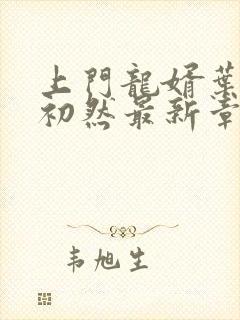 上門龍婿葉
初然最新章
韦旭生